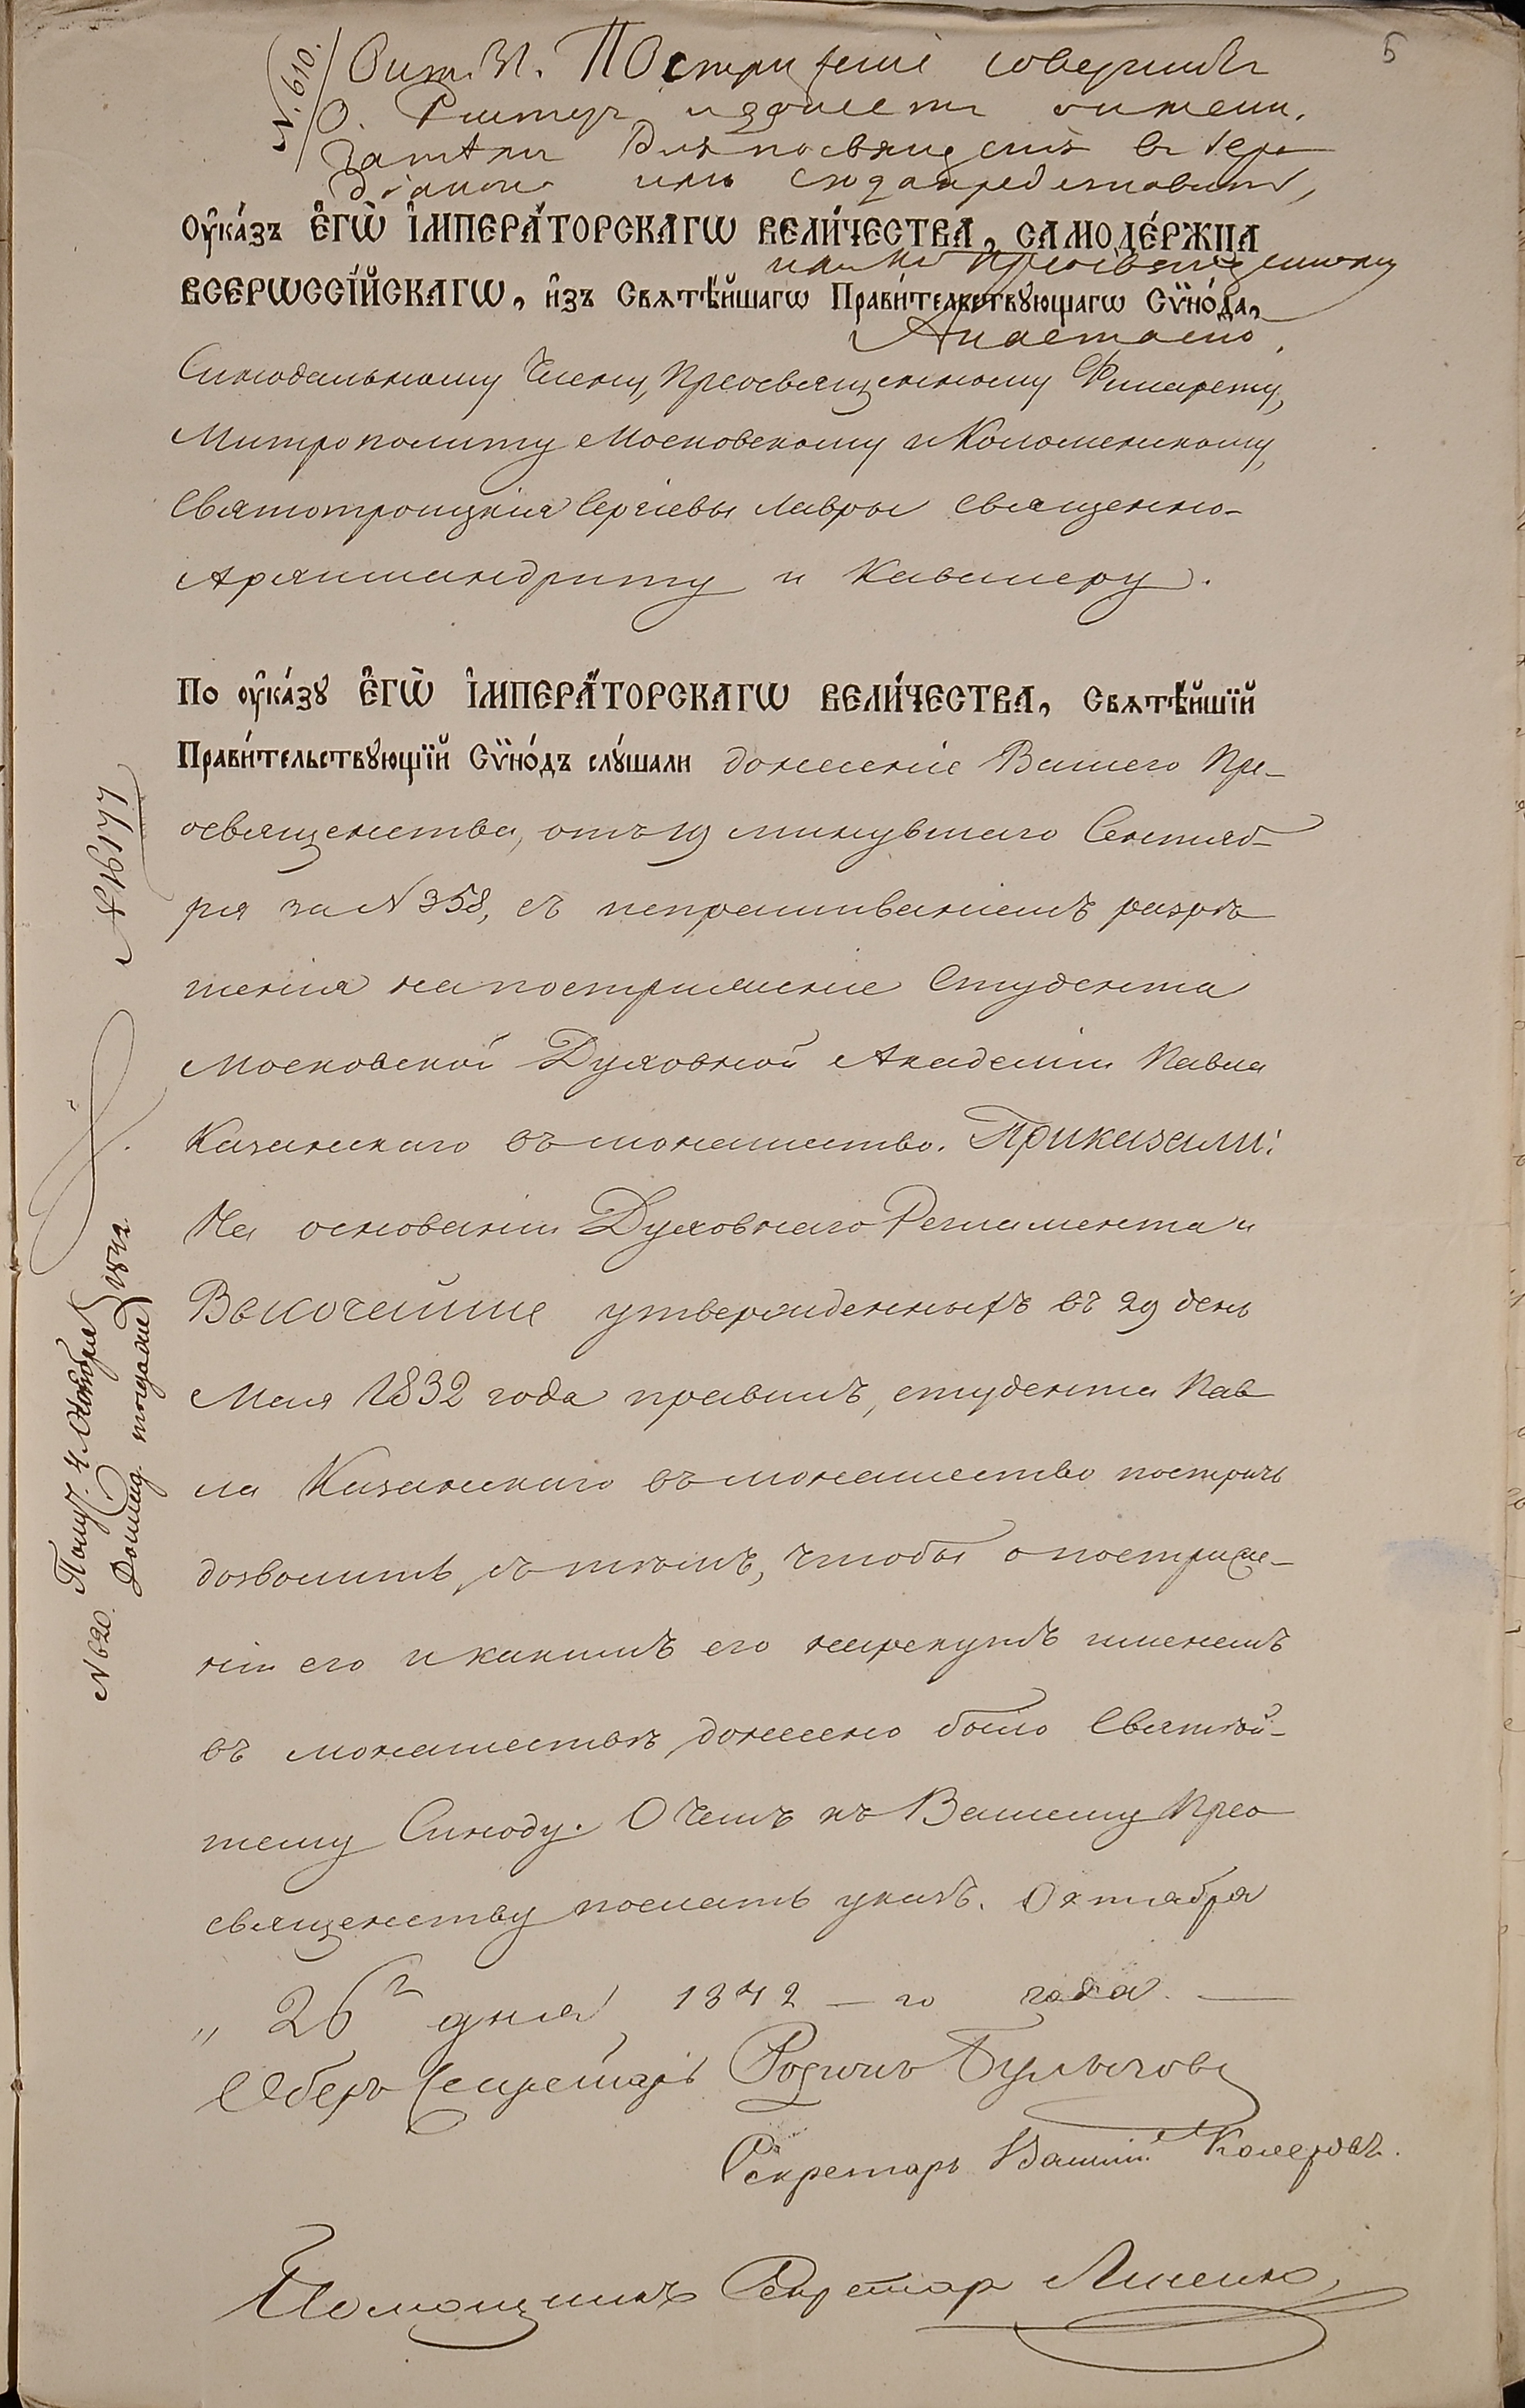 5
N. 610.
Окт. 31. Постриженіе совершитъ
О. Ректоръ и донесетъ о имени.
Затѣмъ для посвященія въ Іеро
діакона или сюда представить,
ОУ҆ка́зъ Є҆ГѠ̀ І҆МПЕРА́ТОРСКАГѠ ВЕЛИ́ЧЕСТВА, САМОДЕ́РЖЦА
или къ Преосвященному
ВСЕРѠССІ́ЙСКАГѠ, и҆зъ Свѧтѣ́йшагѡ Прави́тельствꙋющагѡ Сѷно́да,
Синодальному Члену, Преосвященному Филарету,
Митрополиту Московскому и Коломенскому,
Святотроицкія Сергіевы Лавры Священно-
Архимандриту и Кавалеру.
По оу҆ка́зꙋ Є҆ГѠ̀ І҆МПЕРА́ТОРСКАГѠ ВЕЛИ́ЧЕСТВА, Свѧтѣ́йшїй
Прави́тельствꙋющїй Сѷно́дъ слꙋ́шали донесеніе Вашего Пре-
освященства, отъ 19 минувшаго Сентяб-
ря за N 358, съ испрашиваніемъ разрѣ
шенія на постриженіе Студента
Московской Духовной Академіи Павла
Казанскаго въ монашество. Приказали:
На основаніи Духовнаго Регламента и
Высочайше утвержденныхъ въ 29 день
Мая 1832 года правилъ, студента Пав
ла Казанскаго въ монашество постричь
дозволить, съ тѣмъ, чтобы о постриже-
ніи его и какимъ его нарекутъ именемъ
въ монашествѣ, донесено было Святѣй-
шему Синоду. О чемъ къ Вашему Прео
священству послать указъ. Октября
„ 26 дня 1842 – го года. —
Оберъ Секретарь
Секретарь
Помощникъ Секретаря
N 6177
N 620. Получ. 4. Ноября
Доклад. тогоже } 1842